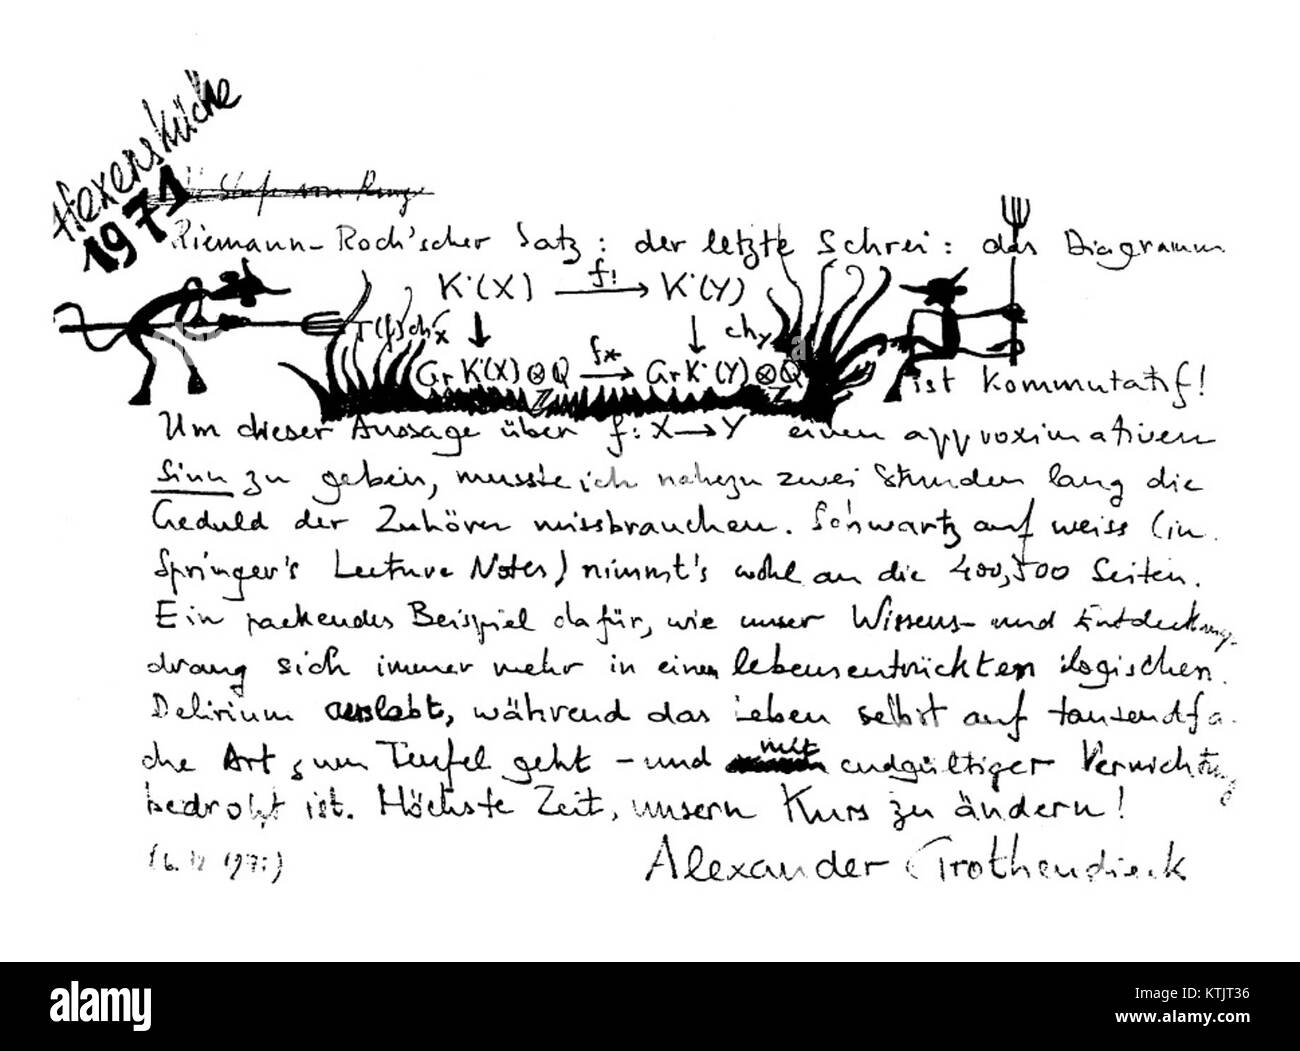 Hexenküche
1971
Riemann-Roch'scher Satz: der letzte Schrei: das Diagramm
K·(X) f! → K·(Y)
↓ ↓ chY
Gr K·(X) ⊗ Q f* → Gr K·(Y) ⊗ Q
Z Z
ist kommutatif!
Um dieser Aussage über f: X → Y einen approximativen
Sinn zu geben, musste ich nahezu zwei Stunden lang die
Geduld der Zuhörer missbrauchen. Schwartz auf weiss (in
Springer's Lecture Notes) nimmt's wohl an die 400, 500 Seiten.
Ein packendes Beispiel dafür, wie unser Wissens- und Entdeckungs-
drang sich immer mehr in einem lebensentrückten logischen
Delirium auslebt, während das Leben selbst auf tausendfa-
che Art zum Teufel geht – und mit endgültiger Vernichtung
bedroht ist. Höchste Zeit, unsern Kurs zu ändern!
Alexander Grothendieck
alamy
alamy
Image ID: KTJT36
www.alamy.com